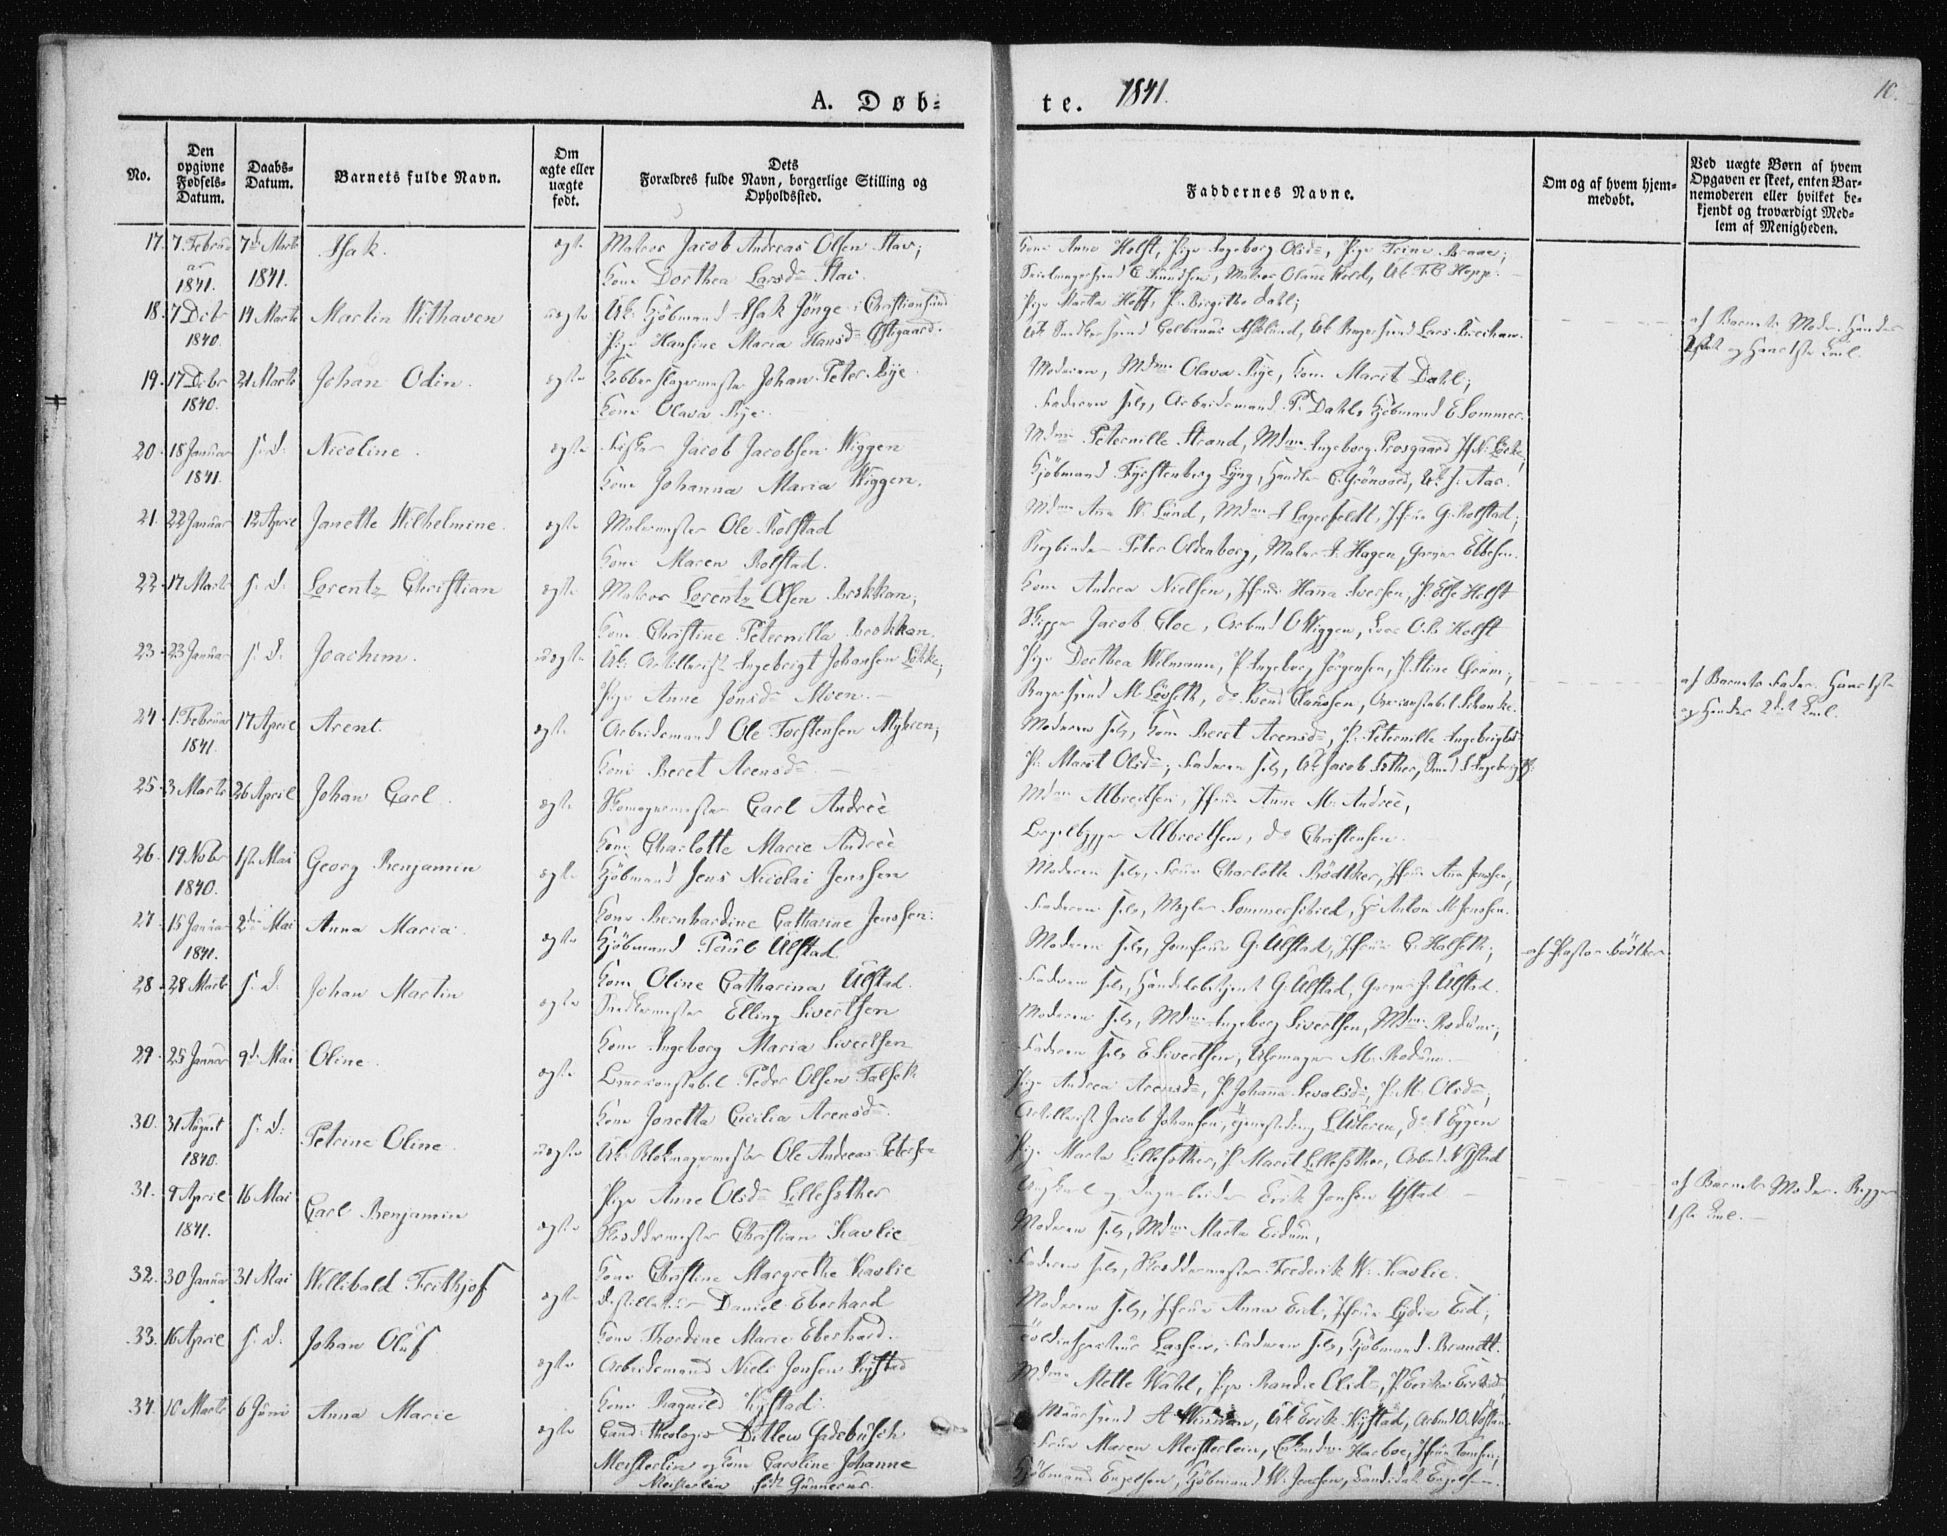 A. Døb-
te. 1841.
10.
No.
Den opgivne Fødsels-Datum.
Daabs-Datum.
Barnets fulde Navn.
Om ægte eller uægte født.
Dets Forældres fulde Navn, borgerlige Stilling og Opholdssted.
Faddernes Navne.
Om og af hvem hjemmedøbt.
Ved uægte Børn af hvem Opgaven er skeet, enten Barnemoderen eller hvilket bekjendt og troværdigt Medlem af Menigheden.
17. 7. Februar 1841. 7de Marts 1841. Isak. ægte Matros Jacob Andreas Olsen Stav;
Kone Dorthea Larsd. Stav.
Kone Anne Holst, Pige Ingeborg Olsd., Pige Trine Braae;
18. 7 Decbr 1840. 14 Marts Martin Withaven uægte Uk. Kjöbmand Isak Jönge i Christiansund
Pige Hansine Maria Hansd. Östgaard.
Pige Marta Hoff, P. Birgitte Dahl;
af Barnets Moder. Hendes
19. 17 Decbr 1840. 21 Marts Johan Odin. ægte Kobberslagermester Johan Peter Rye.
Kone Olava Rye.
Moderen, Mdme Olava Rye, Kone Marit Dahl;
Faderen selv, Arbeidsmand P. Dahl, Kjöbmand E Sommer.
20 18 Januar 1841. s. d. Nicoline. ægte Fisker Jacob Jacobsen Wiggen
Kone Johanna Maria Wiggen.
Mdme Peternille Strand, Mdme Ingeborg Prosgaard
Kjöbmand Fyrstenberg Lyng, Handler C. Grönvold, Uk. J. Aas.
21. 22 Januar 12 April Janette Wilhelmine. ægte Malermester Ole Rolstad
Kone Maren Rolstad.
Mdme Ane W. Lund, Mdme A Lagerfeldt, Jfrue G. Rolstad;
Bogbinder Peter Oldenborg, Maler A. Hagen, Garver Ebbesen.
22. 17 Marts s. d. Lorentz Christian ægte Matros Lorentz Olsen Brekkan;
Kone Christine Peternilla Brekkan.
Kone Andrea Nielsen, Jfrue Hanna Iversen, P. Else Holst
Skipper Jacob Cloe, Arbmd O Wiggen, Lods O. B. Holst
23. 23 Januar s. d. Joachim. uægte Uk. Artillerist Ingebrigt Johansen Løkke;
Pige Anne Jonsd. Moen.
Pige Dorthea Welmann, P. Ingeborg Jörgensen, P. Stine Gram;
af Barnets Fader. Hans 1ste
og Hendes 2det Leml.
24. 1. Februar 1841. 17 April Arent. ægte Arbeidsmand Ole Torstensen Myhren;
Kone Beret Arensd.
Moderen selv, Kone Beret Arensd., P. Peternille Ingebrigtsd.
P. Marit Olsd.; Faderen selv, Uk. Jacob Esther,
25. 3 Marts 26 April Johan Carl. ægte Skomagermester Carl Andreè
Kone Charlotte Marie Andreè
Mdme Albrectsen, Jfrue Anne M. Andreè,
Orgelbygger Albrectsen, do Christensen.
26. 19 Novbr 1840. 1ste Mai Georg Benjamin ægte Kjöbmand Jens Nicolai Jenssen
Kone Bernhardine Catharine Jenssen.
Moderen selv, Frue Charlotte Bödtker, Jfrue Ane Jenssen,
Faderen selv, Mægler Sommerschield, Hr Anton M Jenssen.
27. 15 Januar 1841. 2den Mai Anna Maria. ægte Kjöbmand Paul Ulstad
Kone Oline Catharina Ulstad.
Moderen selv, Jomfrue G. Ulstad, Jfrue C. Halseth;
Faderen selv, Handelsbetjent G. Ulstad, Garver J. Ulstad.
af Pastor Bödtker
28. 28 Marts s. d. Johan Martin ægte Snedkermester Elling Sivertsen
Kone Ingeborg Maria Sivertsen
Moderen selv, Mdme Ingeborg Sivertsen, Mdme Rodum;
Faderen selv E Sivertsen, Uhrmager M. Rodum.
29. 25 Januar 9de Mai Oline. ægte Peder Olsen Talseth
Kone Jonetta Cicilia Arensd.
Pige Andrea Arensd., P. Johanna Sevaldsd., P. M. Olsd.,
30. 31 August 1840. s. d. Petrine Oline. uægte Uk. Blokmagermester Ole Andreas Petersen
Pige Anne Olsd. Lillesther
Pige Marta Lillesther, P. Marit Lillesther,
Erik Jonsen Ystad
af Barnets Moder. Begges
1ste Leml.
31. 9 April 1841. 16 Mai Carl Benjamin ægte Skræddermester Christian Kavlie
Kone Christine Margrethe Kavlie
Moderen selv, Mdme Marta Eidum,
Faderen selv, Skræddermester Frederik W. Kavlie.
32. 30 Januar 31 Mai Willibald Frithjof ægte Destillateur Daniel Eberhard
Kone Thordine Marie Eberhard.
Moderen selv, Jfrue Anna Eid, Jfrue Lydia Eid;
Toldinspecteur Lassen, Faderen selv, Kjöbmand Brandt.
33. 16 April s. d. Johan Oluf ægte Arbeidsmand Niels Jonsen Rystad
Kone Ragnild Rystad.
Mdme Mette Wahl, Pige Randie Olsd.,
34. 10 Marts 6 Juni Anna Marie ægte Cand. Theologiæ Ditlew Gadebusch
Meisterlin og Kone Caroline Johanne
Meisterlin født Gunnerus.
Frue Maren Meisterlin,
Kjöbmand Engelsen, Kjöbmand W. Jenssen, Candidat Engelsen.